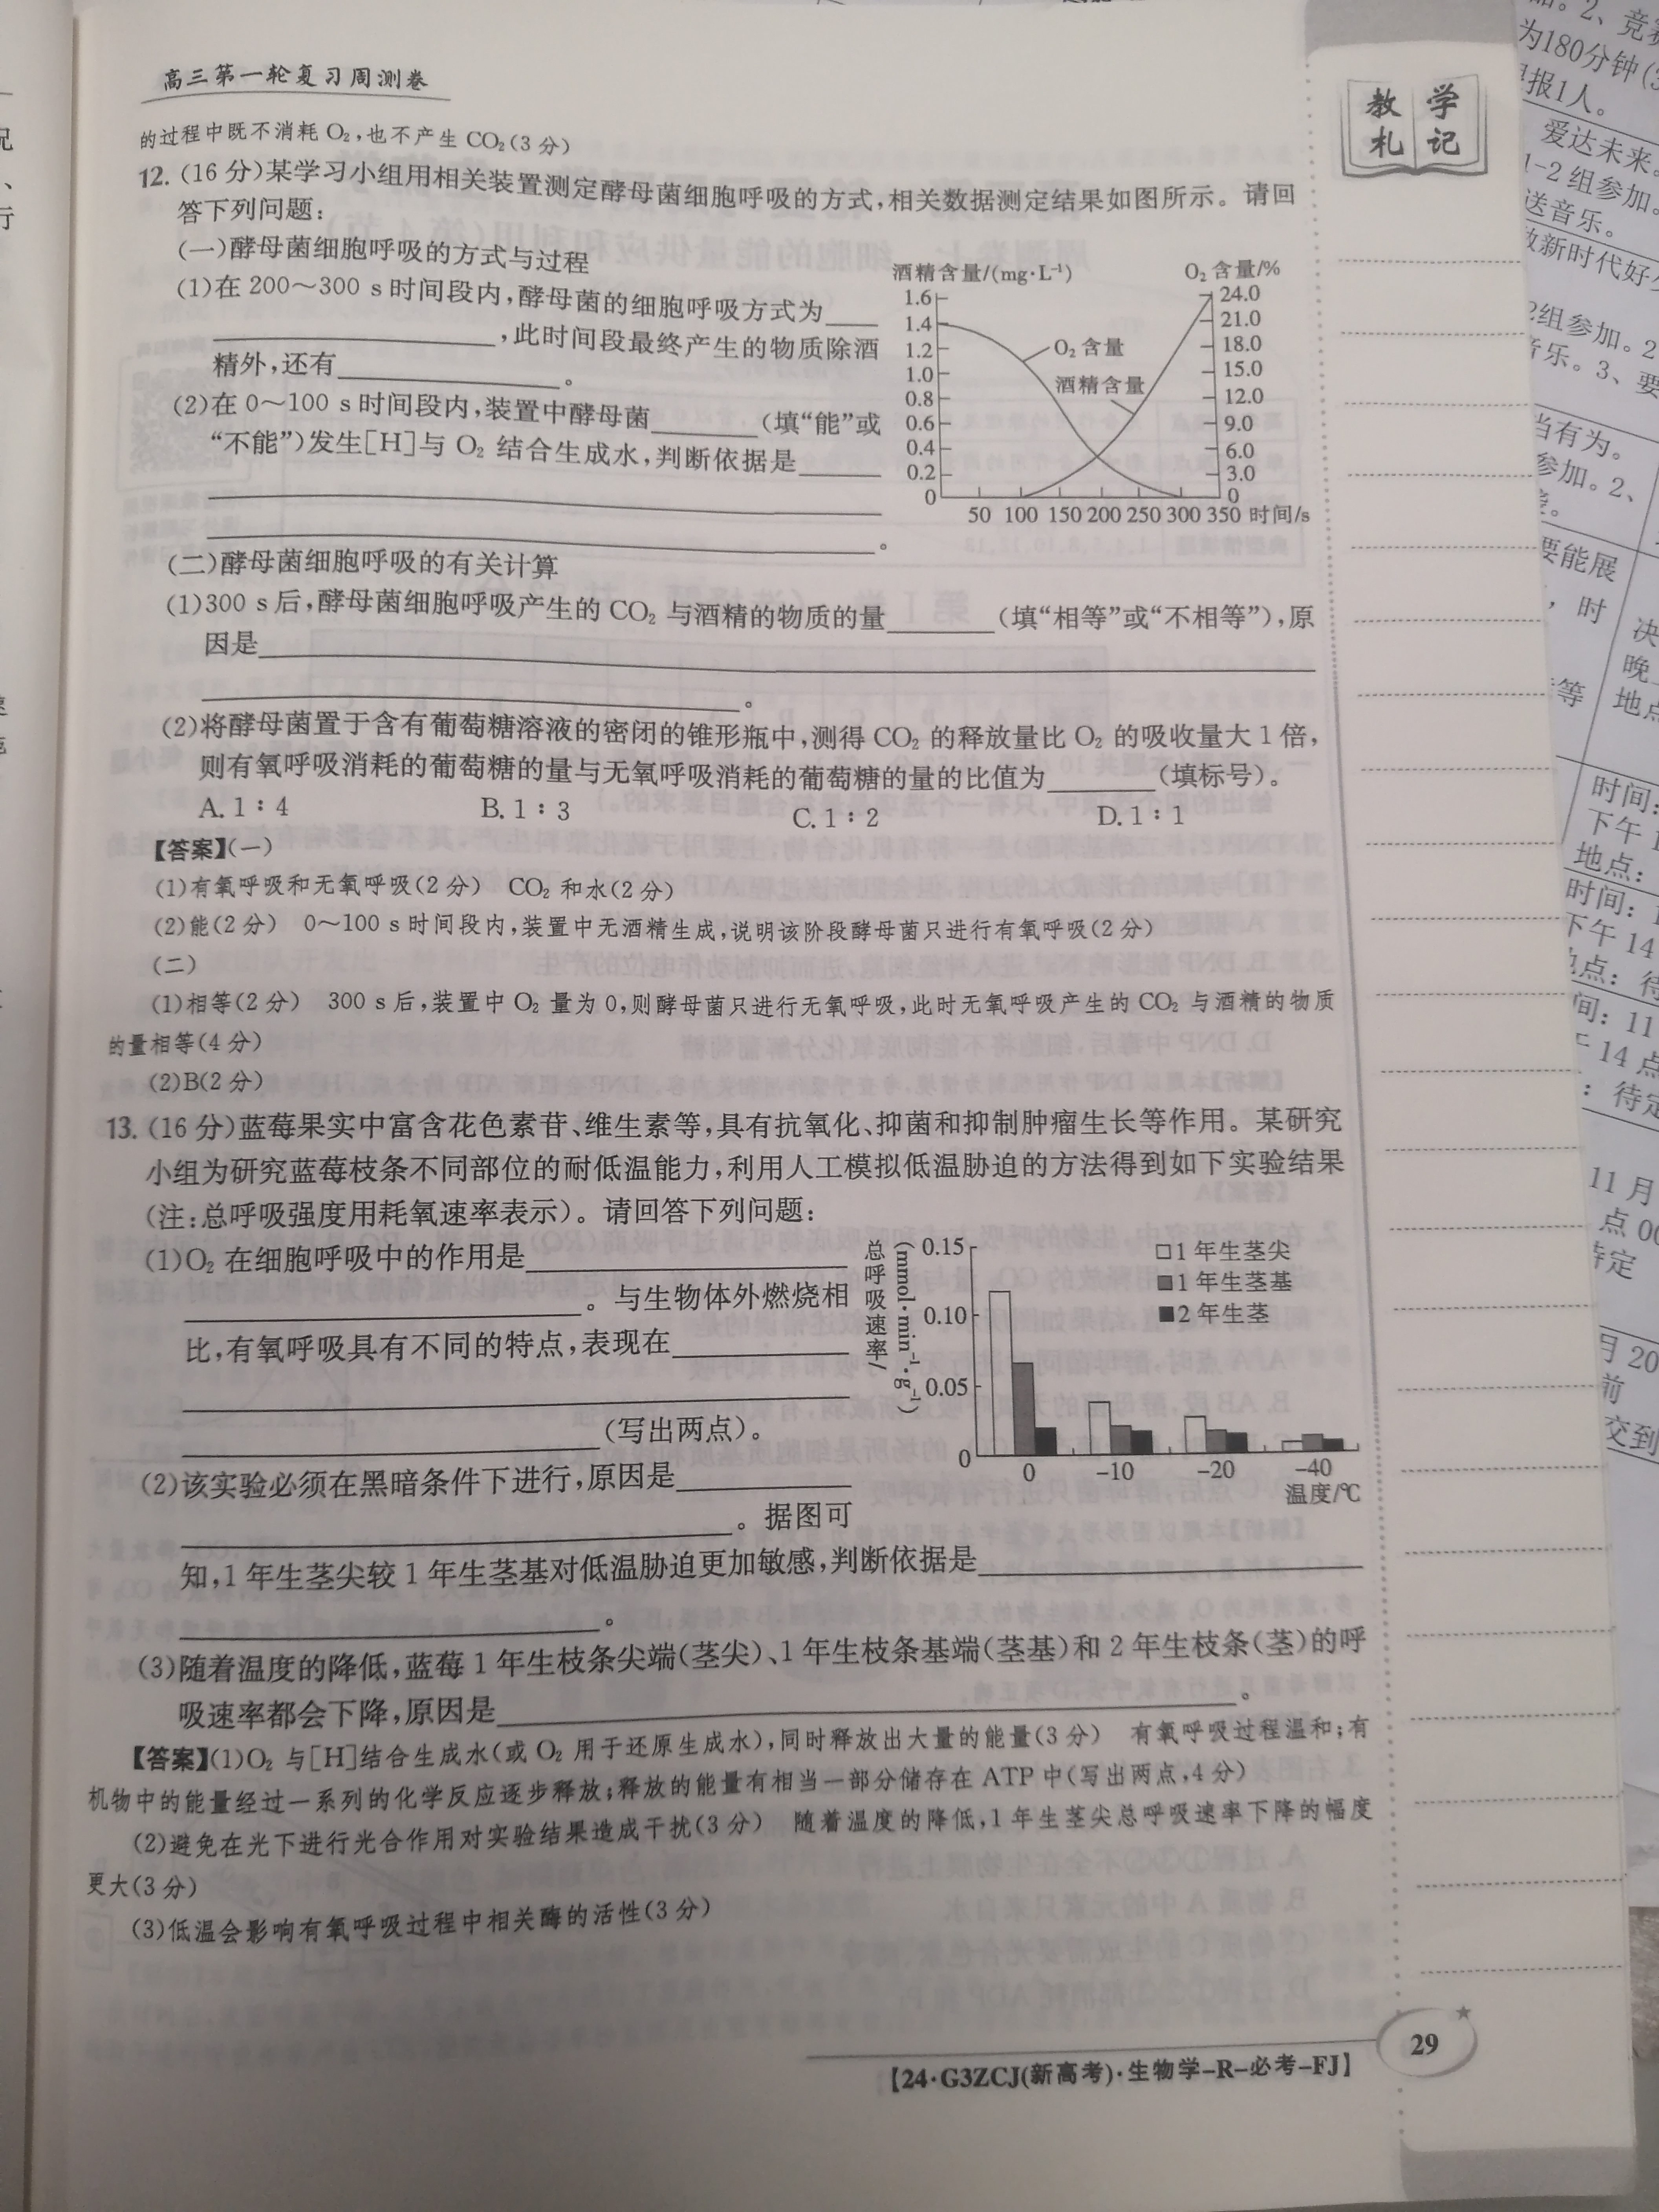 高三第一轮复习周测卷
的过程中既不消耗 O₂,也不产生 CO₂(3 分)
12. (16 分)某学习小组用相关装置测定酵母菌细胞呼吸的方式,相关数据测定结果如图所示。请回
答下列问题:
(一)酵母菌细胞呼吸的方式与过程
(1)在 200～300 s 时间段内,酵母菌的细胞呼吸方式为____
____,此时间段最终产生的物质除酒
精外,还有____。
(2)在 0～100 s 时间段内,装置中酵母菌____(填“能”或
“不能”)发生[H]与 O₂ 结合生成水,判断依据是____
____。
酒精含量/(mg·L⁻¹)
O₂ 含量/%
1.6
1.4
1.2
1.0
0.8
0.6
0.4
0.2
0
24.0
21.0
18.0
15.0
12.0
9.0
6.0
3.0
0
O₂ 含量
酒精含量
50 100 150 200 250 300 350 时间/s
(二)酵母菌细胞呼吸的有关计算
(1)300 s 后,酵母菌细胞呼吸产生的 CO₂ 与酒精的物质的量____(填“相等”或“不相等”),原
因是____
____。
(2)将酵母菌置于含有葡萄糖溶液的密闭的锥形瓶中,测得 CO₂ 的释放量比 O₂ 的吸收量大 1 倍,
则有氧呼吸消耗的葡萄糖的量与无氧呼吸消耗的葡萄糖的量的比值为____(填标号)。
A. 1∶4 B. 1∶3 C. 1∶2 D. 1∶1
【答案】(一)
(1)有氧呼吸和无氧呼吸(2 分) CO₂ 和水(2 分)
(2)能(2 分) 0～100 s 时间段内,装置中无酒精生成,说明该阶段酵母菌只进行有氧呼吸(2 分)
(二)
(1)相等(2 分) 300 s 后,装置中 O₂ 量为 0,则酵母菌只进行无氧呼吸,此时无氧呼吸产生的 CO₂ 与酒精的物质
的量相等(4 分)
(2)B(2 分)
13. (16 分)蓝莓果实中富含花色素苷、维生素等,具有抗氧化、抑菌和抑制肿瘤生长等作用。某研究
小组为研究蓝莓枝条不同部位的耐低温能力,利用人工模拟低温胁迫的方法得到如下实验结果
(注:总呼吸强度用耗氧速率表示)。请回答下列问题:
(1)O₂ 在细胞呼吸中的作用是____
____。与生物体外燃烧相
比,有氧呼吸具有不同的特点,表现在____
____(写出两点)。
(2)该实验必须在黑暗条件下进行,原因是____
____。据图可
知,1 年生茎尖较 1 年生茎基对低温胁迫更加敏感,判断依据是____
____。
总呼吸速率/(mmol·min⁻¹·g⁻¹)
0.15
0.10
0.05
0
□1 年生茎尖
■1 年生茎基
■2 年生茎
0 -10 -20 -40
温度/℃
(3)随着温度的降低,蓝莓 1 年生枝条尖端(茎尖)、1 年生枝条基端(茎基)和 2 年生枝条(茎)的呼
吸速率都会下降,原因是____。
【答案】(1)O₂ 与[H]结合生成水(或 O₂ 用于还原生成水),同时释放出大量的能量(3 分) 有氧呼吸过程温和;有
机物中的能量经过一系列的化学反应逐步释放;释放的能量有相当一部分储存在 ATP 中(写出两点,4 分)
(2)避免在光下进行光合作用对实验结果造成干扰(3 分) 随着温度的降低,1 年生茎尖总呼吸速率下降的幅度
更大(3 分)
(3)低温会影响有氧呼吸过程中相关酶的活性(3 分)
【24·G3ZCJ(新高考)·生物学-R-必考-FJ】
29
教学
札记
为180分钟
报1人。
爱达未来。
1-2 组参加。
送音乐。
2组参加。2
音乐。3、要
当有为。
参加。2、
要能展
时
等
决
晚
地点
时间:
下午 1
地点:
时间:
下午 14
点: 待
间: 11
14 点
: 待定
11 月
点 00
待定
月 20
前
交到